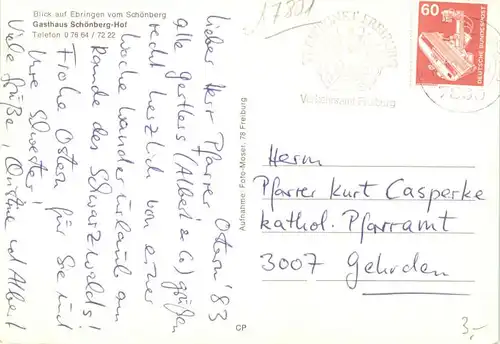 Blick auf Ebringen vom Schönberg
Gasthaus Schönberg-Hof
Telefon 0 76 64 / 72 22
Ostern '83
Lieber Herr Pfarrer
alle gestless (Albert & Co) grüßen
recht herzlich von einer
Woche Wanderurlaub am
Rande des Schwarzwalds!
Frohe Ostern für Sie und
Ihre Schwester!
Viele Grüße, und Albert
Aufnahme: Foto-Moser, 78 Freiburg
CP
17831
Verkehrsamt Freiburg
60
DEUTSCHE BUNDESPOST
Herrn
Pfarrer Kurt Casperke
kathol. Pfarramt
3007 Gehrden
3,-